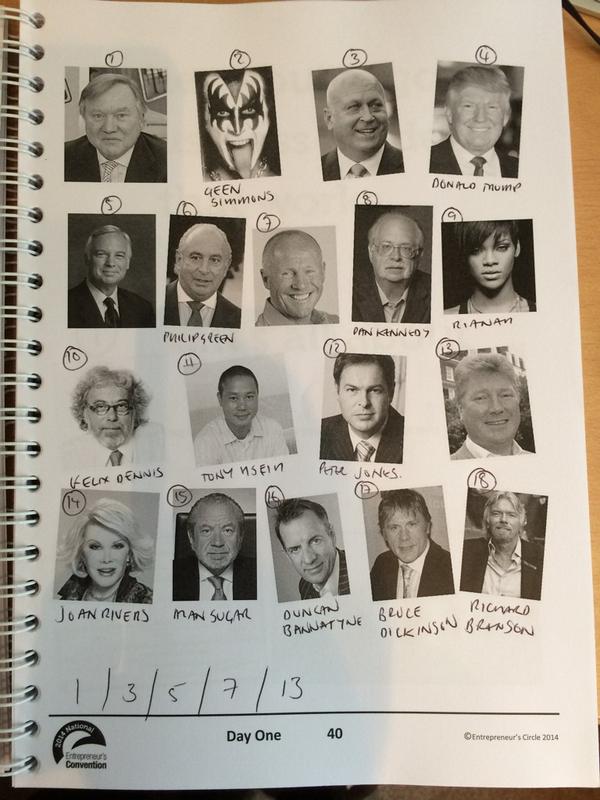 1 2 3 4
GEEN
SIMMONS
DONALD TRUMP
5 6 7 8 9
PHILIP GREEN
DAN KENNEDY
RIANAH
10 11 12 13
FELIX DENNIS
TONY HSEIH
PETER JONES.
14 15 16 17 18
JOAN RIVERS
ALAN SUGAR
DUNCAN
BANNATYNE
BRUCE
DICKINSON
RICHARD
BRANSON
1 / 3 / 5 / 7 / 13
2014 National
Entrepreneur's
Convention
Day One 40
©Entrepreneur's Circle 2014